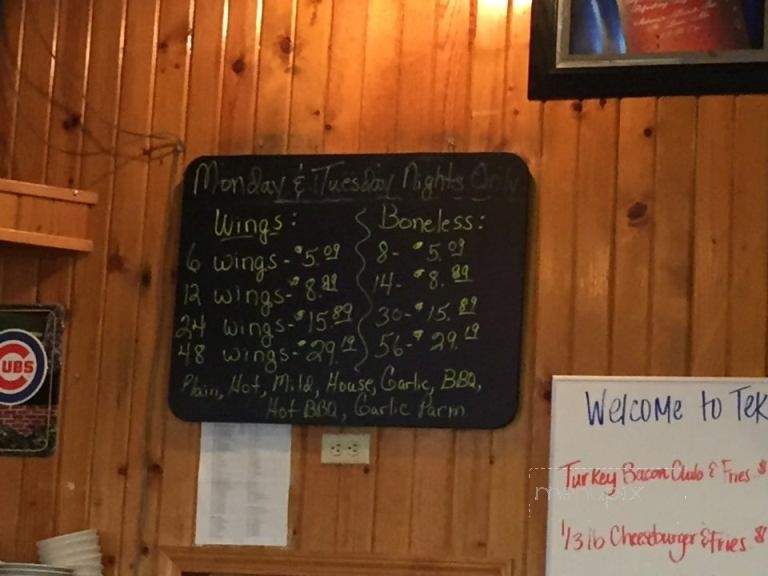 Monday & Tuesday Nights Only
Wings:
6 wings - $5.09
12 wings - $8.89
24 wings - $15.89
48 wings - $29.19
Boneless:
8 - $5.09
14 - $8.89
30 - $15.89
56 - $29.19
Plain, Hot, Mild, House, Garlic, BBQ,
Hot BBQ, Garlic Parm
CUBS
Welcome to Tek
Turkey Bacon Club & Fries $
1/3 lb Cheeseburger & Fries $
menupix